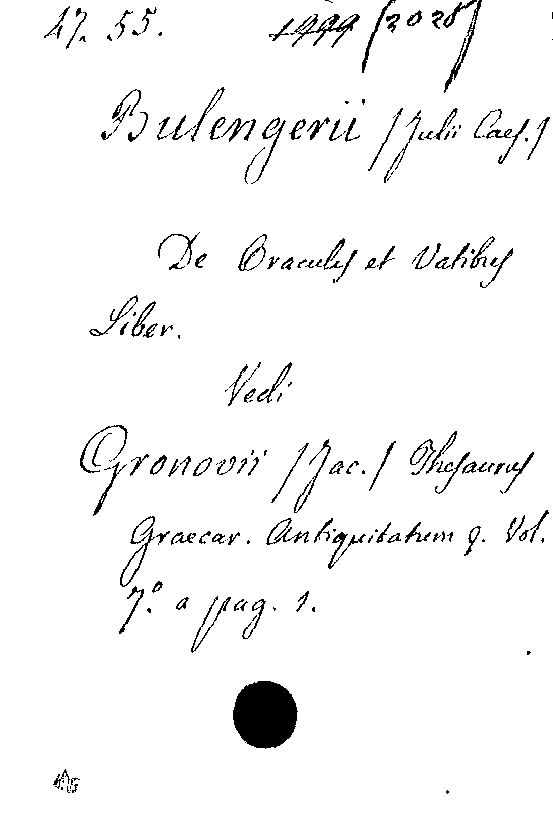 47. 55. 1999 (2028)
Bulengerii (Julii Caes.)
De Oraculis et Vatibus
Liber.
Vedi
Gronovii (Jac.) Thesaurus
Graecar. Antiquitatum &. Vol.
7.º a pag. 1.